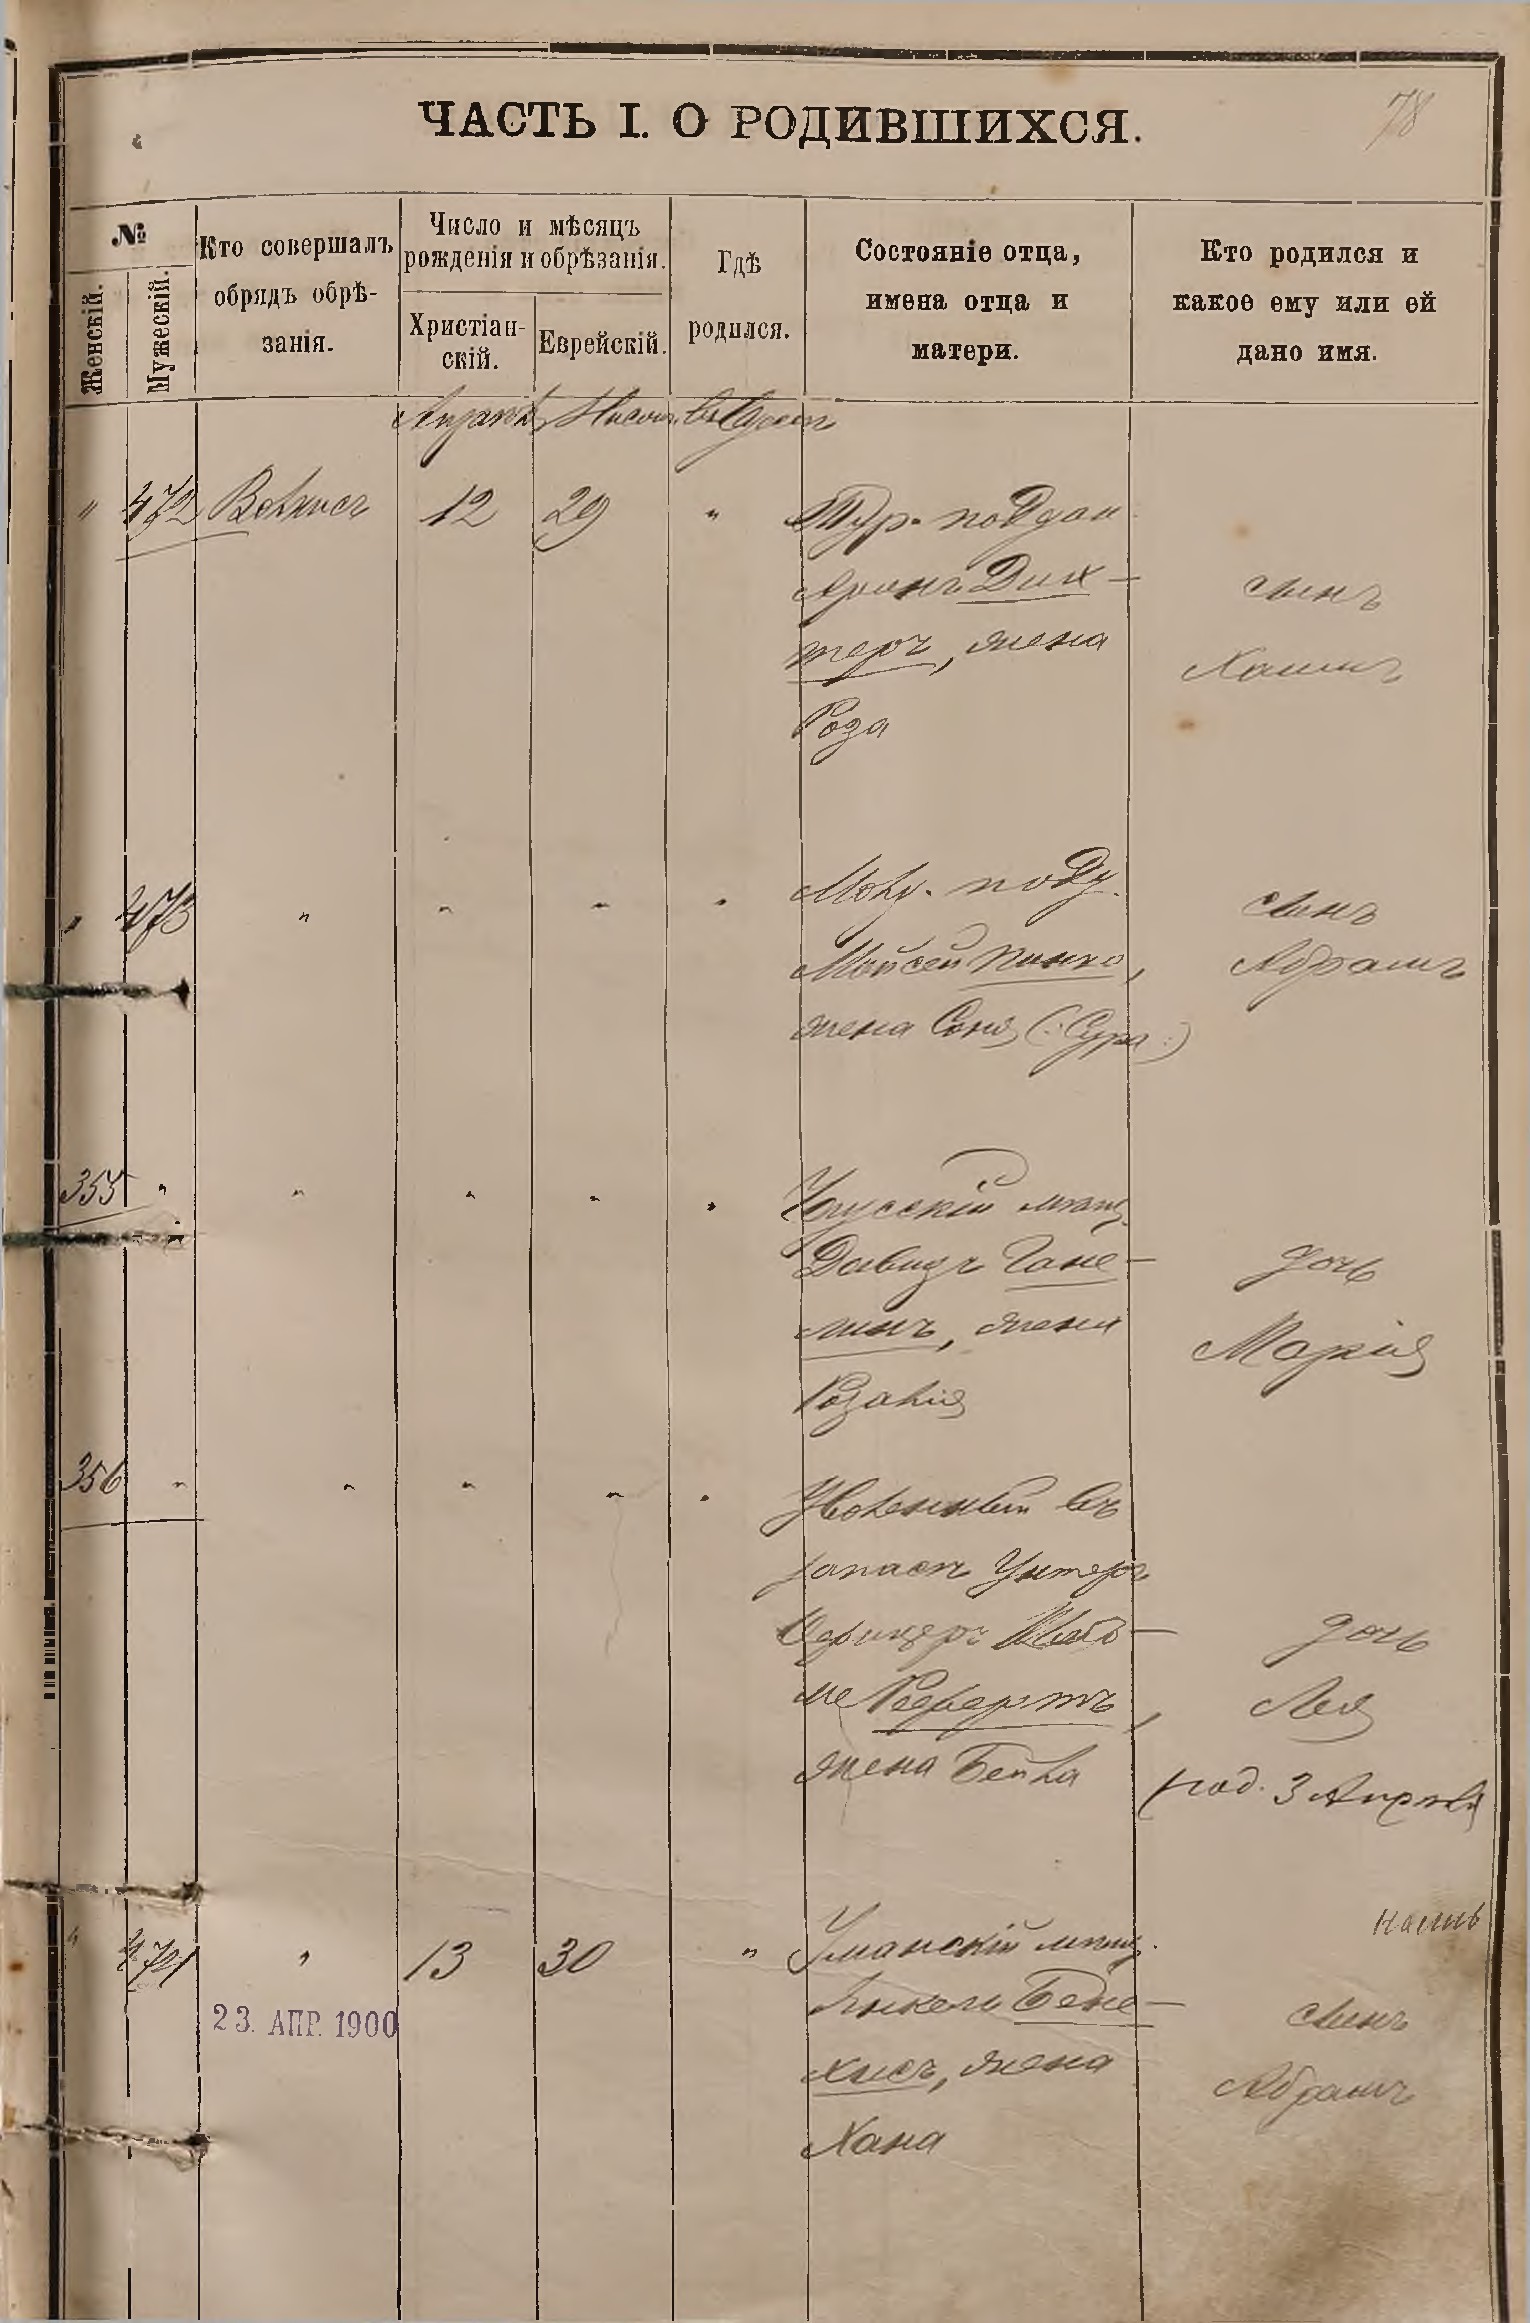 ЧАСТЬ I. О РОДИВШИХСЯ.
78
№
Женскій.
Мужескій.
Кто совершалъ
обрядъ обрѣ-
занія.
Число и мѣсяцъ
рожденія и обрѣзанія.
Христіан-
скій.
Еврейскій.
Гдѣ
родился.
Состояніе отца,
имена отца и
матери.
Кто родился и
какое ему или ей
дано имя.
Апрѣль Нисонъ Въ Одессѣ
" 472 12 29 " Тур. поддан.
Аронъ Дих-
теръ, жена
Роза
сынъ
Хаимъ
" 473 " " " " Моисей Пинко,
жена Соня (: Сура :)
сынъ
Абрамъ
355 " " " " " мѣщ.
Давидъ Гане-
линъ, жена
Розалія
дочь
Марія
356 " " " " " Уволенный въ
запасъ Унтеръ
Офицеръ
жена Бейла
дочь
Лея
(род. 3 Апрѣля)
" 474 " 13 30 " Уманскій мѣщ.
Янкель Бене-
хисъ, жена
Хана
сынъ
Абрамъ
23. АПР. 1900